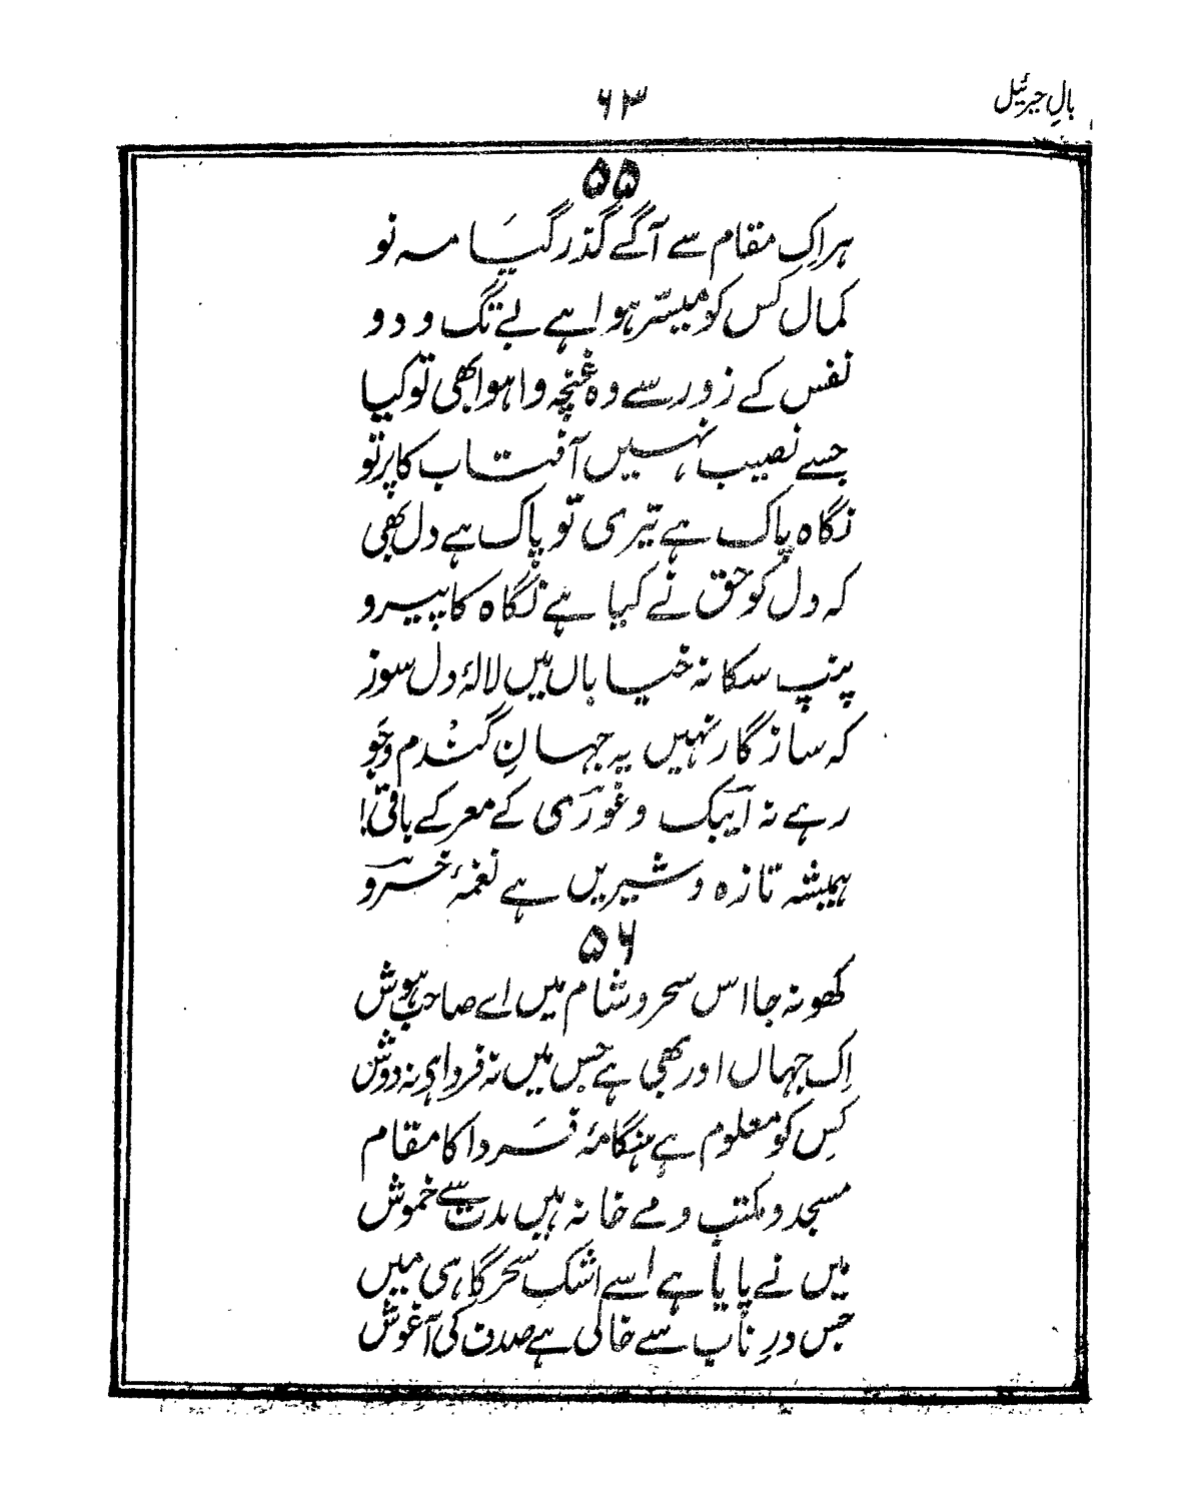 بالِ جبرئیل
۶۳
۵۵
ہر اِک مقام سے آگے گذر گیَا مہ نو
کمال کس کو میسّر ہوا ہے بے تگ و دو
نفس کے زور سے وہ غنچہ وا ہوا بھی تو کیا
جسے نصیب نہیں آفتاب کا پرتو
نگاہ پاک ہے تیری تو پاک ہے دل بھی
کہ دل کو حق نے کیا ہے نگاہ کا پیرو
پنپ سکا نہ خیاباں میں لالۂ دل سوز
کہ سازگار نہیں یہ جہانِ گندم و جَو
رہے نہ ایبک و غوری کے معرکے باقی!
ہمیشہ تازہ و شیریں ہے نغمۂ خسرو
۵۶
کھو نہ جا اس سحر و شام میں اے صاحب ہوش
اِک جہاں اور بھی ہے جس میں نہ فردا ہی نہ دوش
کِس کو معلوم ہے ہنگامۂ فَردا کا مقام
مسجد و مکتب و مے خانہ ہیں مدت سے خموش
میں نے پایا ہے اسے اشک سحر گاہی میں
جس درِ ناب سے خالی ہے صدف کی آغوش